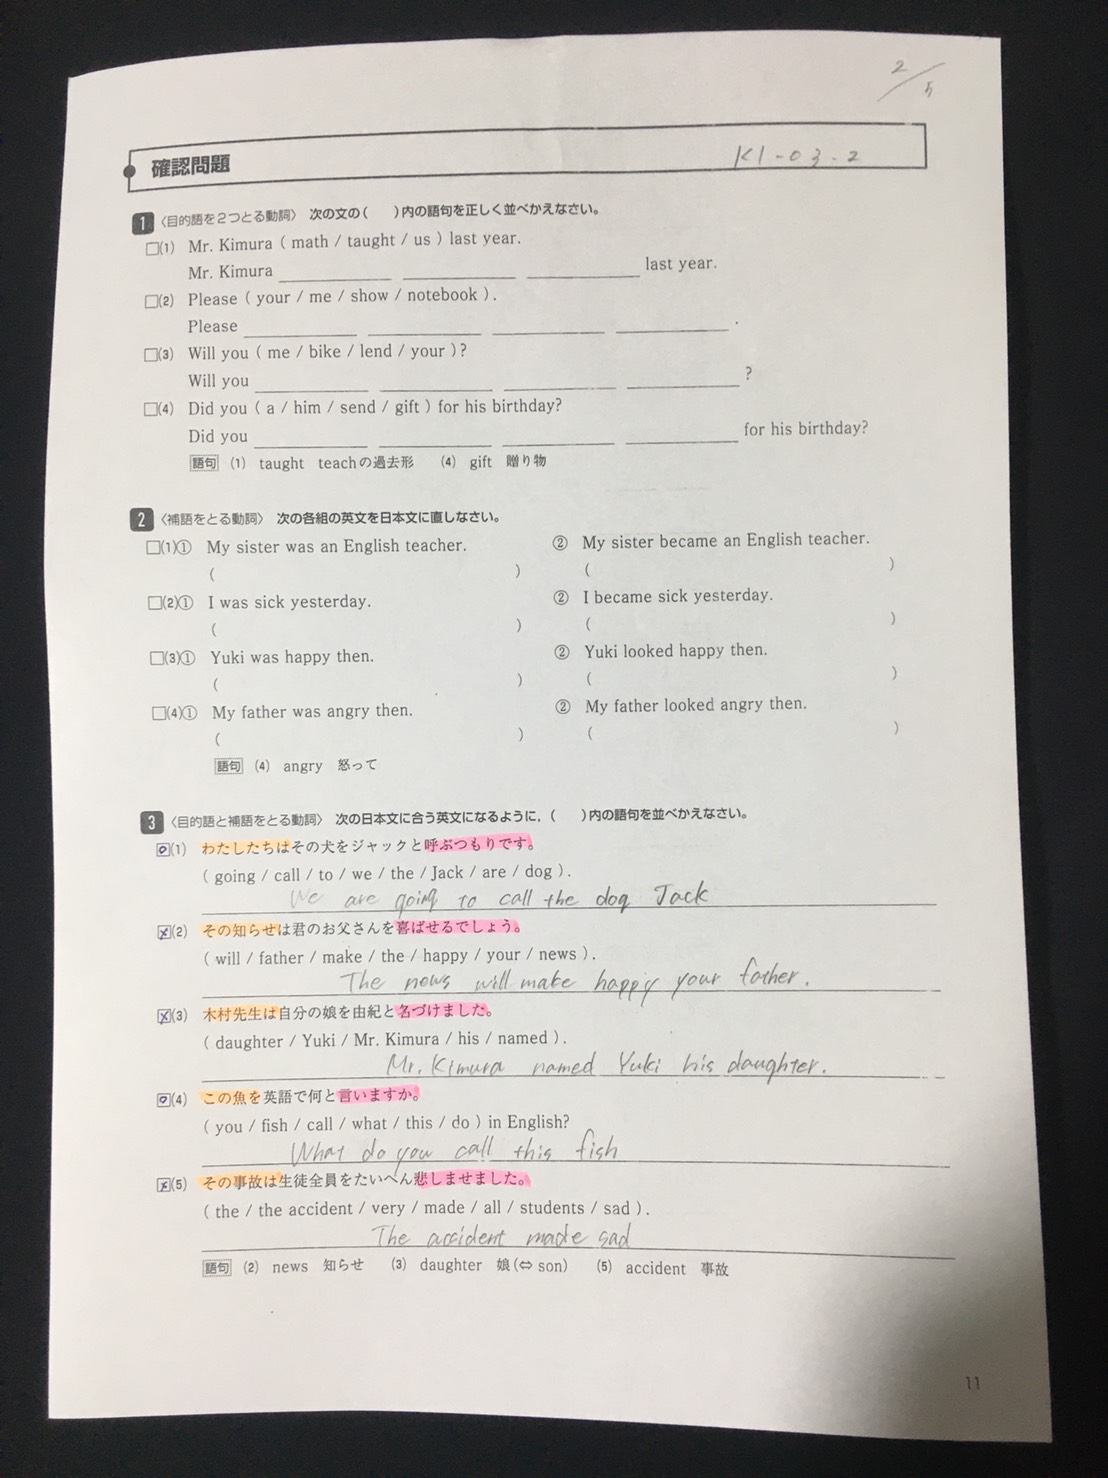 2/5
確認問題
K1-03-2
1 〈目的語を2つとる動詞〉 次の文の(　　)内の語句を正しく並べかえなさい。
□(1) Mr. Kimura ( math / taught / us ) last year.
Mr. Kimura ______ ______ ______ last year.
□(2) Please ( your / me / show / notebook ).
Please ______ ______ ______ ______ .
□(3) Will you ( me / bike / lend / your )?
Will you ______ ______ ______ ______ ?
□(4) Did you ( a / him / send / gift ) for his birthday?
Did you ______ ______ ______ ______ for his birthday?
語句 (1) taught teachの過去形 (4) gift 贈り物
2 〈補語をとる動詞〉 次の各組の英文を日本文に直しなさい。
□(1)① My sister was an English teacher. ② My sister became an English teacher.
(　　) (　　)
□(2)① I was sick yesterday. ② I became sick yesterday.
(　　) (　　)
□(3)① Yuki was happy then. ② Yuki looked happy then.
(　　) (　　)
□(4)① My father was angry then. ② My father looked angry then.
(　　) (　　)
語句 (4) angry 怒って
3 〈目的語と補語をとる動詞〉 次の日本文に合う英文になるように,(　　)内の語句を並べかえなさい。
□(1) わたしたちはその犬をジャックと呼ぶつもりです。
( going / call / to / we / the / Jack / are / dog ).
We are going to call the dog Jack
□(2) その知らせは君のお父さんを喜ばせるでしょう。
( will / father / make / the / happy / your / news ).
The news will make happy your father.
□(3) 木村先生は自分の娘を由紀と名づけました。
( daughter / Yuki / Mr. Kimura / his / named ).
Mr. Kimura named Yuki his daughter.
□(4) この魚を英語で何と言いますか。
( you / fish / call / what / this / do ) in English?
What do you call this fish
□(5) その事故は生徒全員をたいへん悲しませました。
( the / the accident / very / made / all / students / sad ).
The accident made sad
語句 (2) news 知らせ (3) daughter 娘(⇔son) (5) accident 事故
11